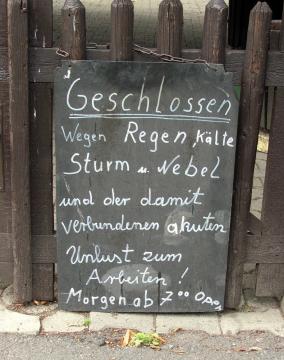 Geschlossen
Wegen Regen, Kälte
Sturm u. Nebel
und der damit
verbundenen akuten
Unlust zum
Arbeiten!
Morgen ab 7⁰⁰